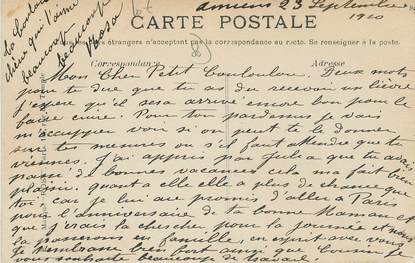 Amiens 23 Septembre
1910
CARTE POSTALE
étrangers n'acceptent pas la correspondance au recto. Se renseigner à la poste.
Correspondance
Adresse
Mon Cher Petit Loulou. Deux mots
pour te dire que tu as du recevoir un lièvre
j'espère qu'il sera arrivé encore bon pour le
faire cuire. Pour ton pardessus je vais
m'occuper voir si on peut te le donner
sur tes mesures ou s'il faut attendre que tu
viennes. J'ai appris par que tu avais
passé de bonnes vacances cela m'a fait bien
plaisir. quant à elle elle a plus de chance que
toi, car je lui ai promis d'aller à Paris
pour l'anniversaire de ta bonne Maman et
que j'irais la chercher, pour la journée et nous
la passerons en famille, en esprit avec vous
Je t'embrasse bien fort ainsi que
vous souhaite beaucoup de travail.
qui t'aime
beaucoup
beaucoup
Rosa